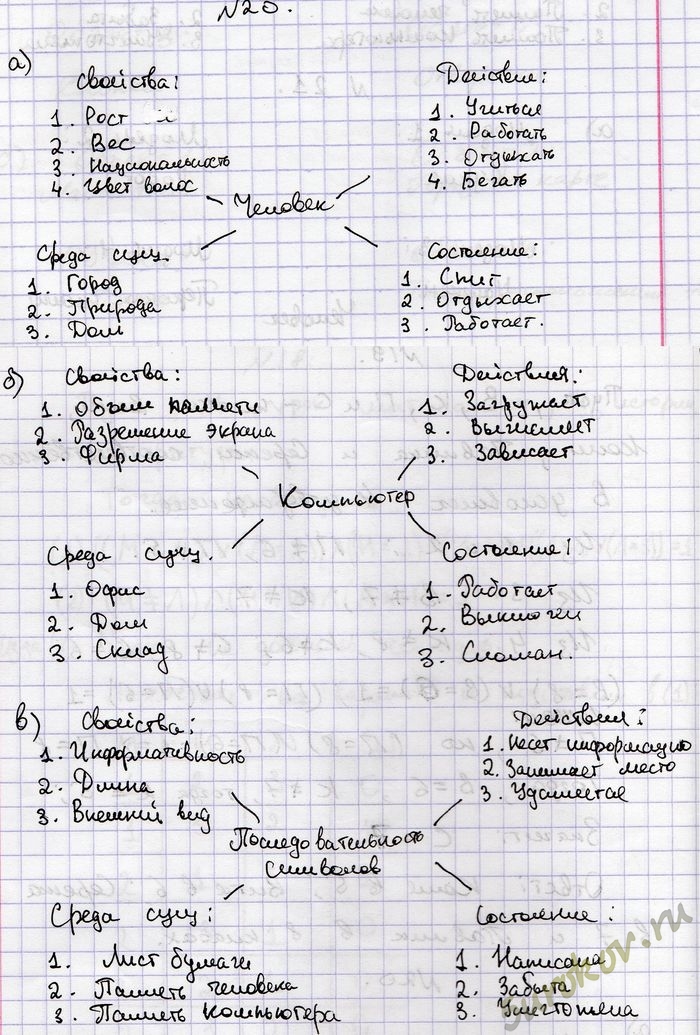 №20.
а)
Свойства:
1. Рост
2. Вес
3. Национальность
4. Цвет волос
Действие:
1. Учиться
2. Работать
3. Отдыхать
4. Бегать
Человек
Среда сущ.
1. Город
2. Природа
3. Дом
Состояние:
1. Спит
2. Отдыхает
3. Работает.
б)
Свойства:
1. Объем памяти
2. Разрешение экрана
3. Фирма
Действия:
1. Загружает
2. Вычисляет
3. Зависает
Компьютер
Среда сущ.
1. Офис
2. Дом
3. Склад
Состояние:
1. Работает
2. Выключен
3. Сломан.
в)
Свойства:
1. Информативность
2. Длина
3. Внешний вид
Действия:
1. Несет информацию
2. Занимает место
3. Удаляется
Последовательность
символов
Среда сущ:
1. Лист бумаги
2. Память человека
3. Память компьютера
Состояние:
1. Написана
2. Забыта
3. Уничтожена